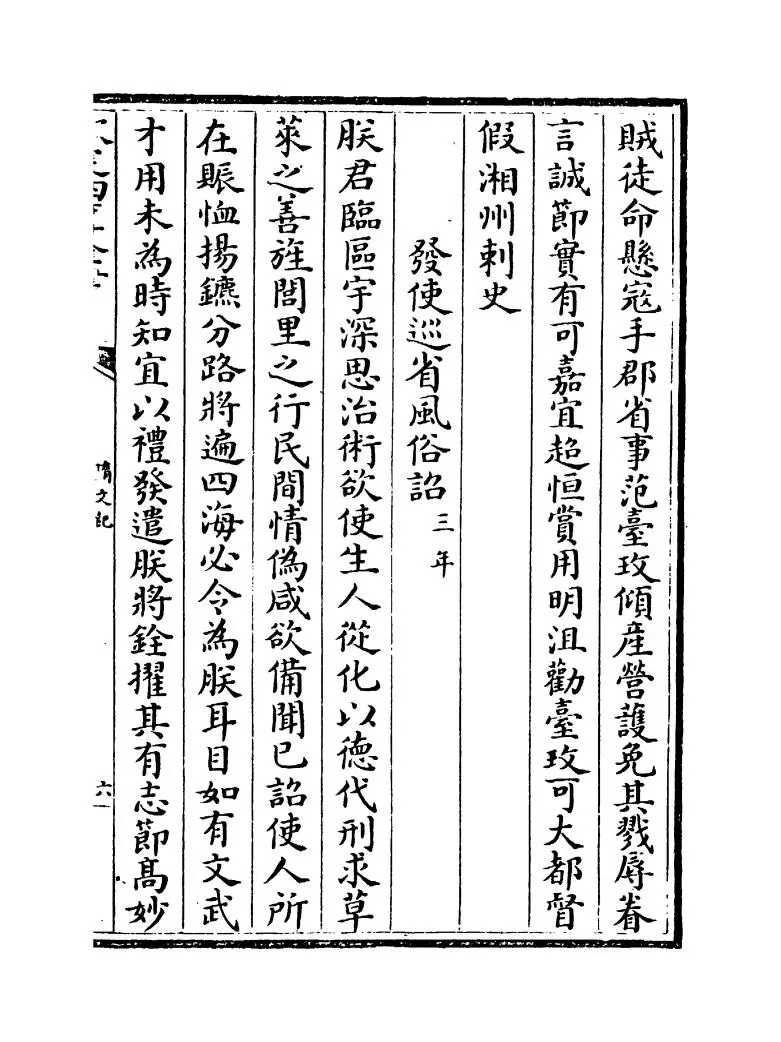 賊徒命懸寇手郡省事范臺玫傾産營護免其戮辱眷
言誠節實有可嘉宜超恒賞用明沮勸臺玫可大都督
假湘州刺史
發使巡省風俗詔三年
朕君臨區宇深思治術欲使生人從化以德代刑求草
萊之善旌閭里之行民間情偽咸欲備聞已詔使人所
在賑恤揚鑣分路將遍四海必令為朕耳目如有文武
才用未為時知宜以禮發遣朕將銓擢其有志節髙妙
隋文紀
六